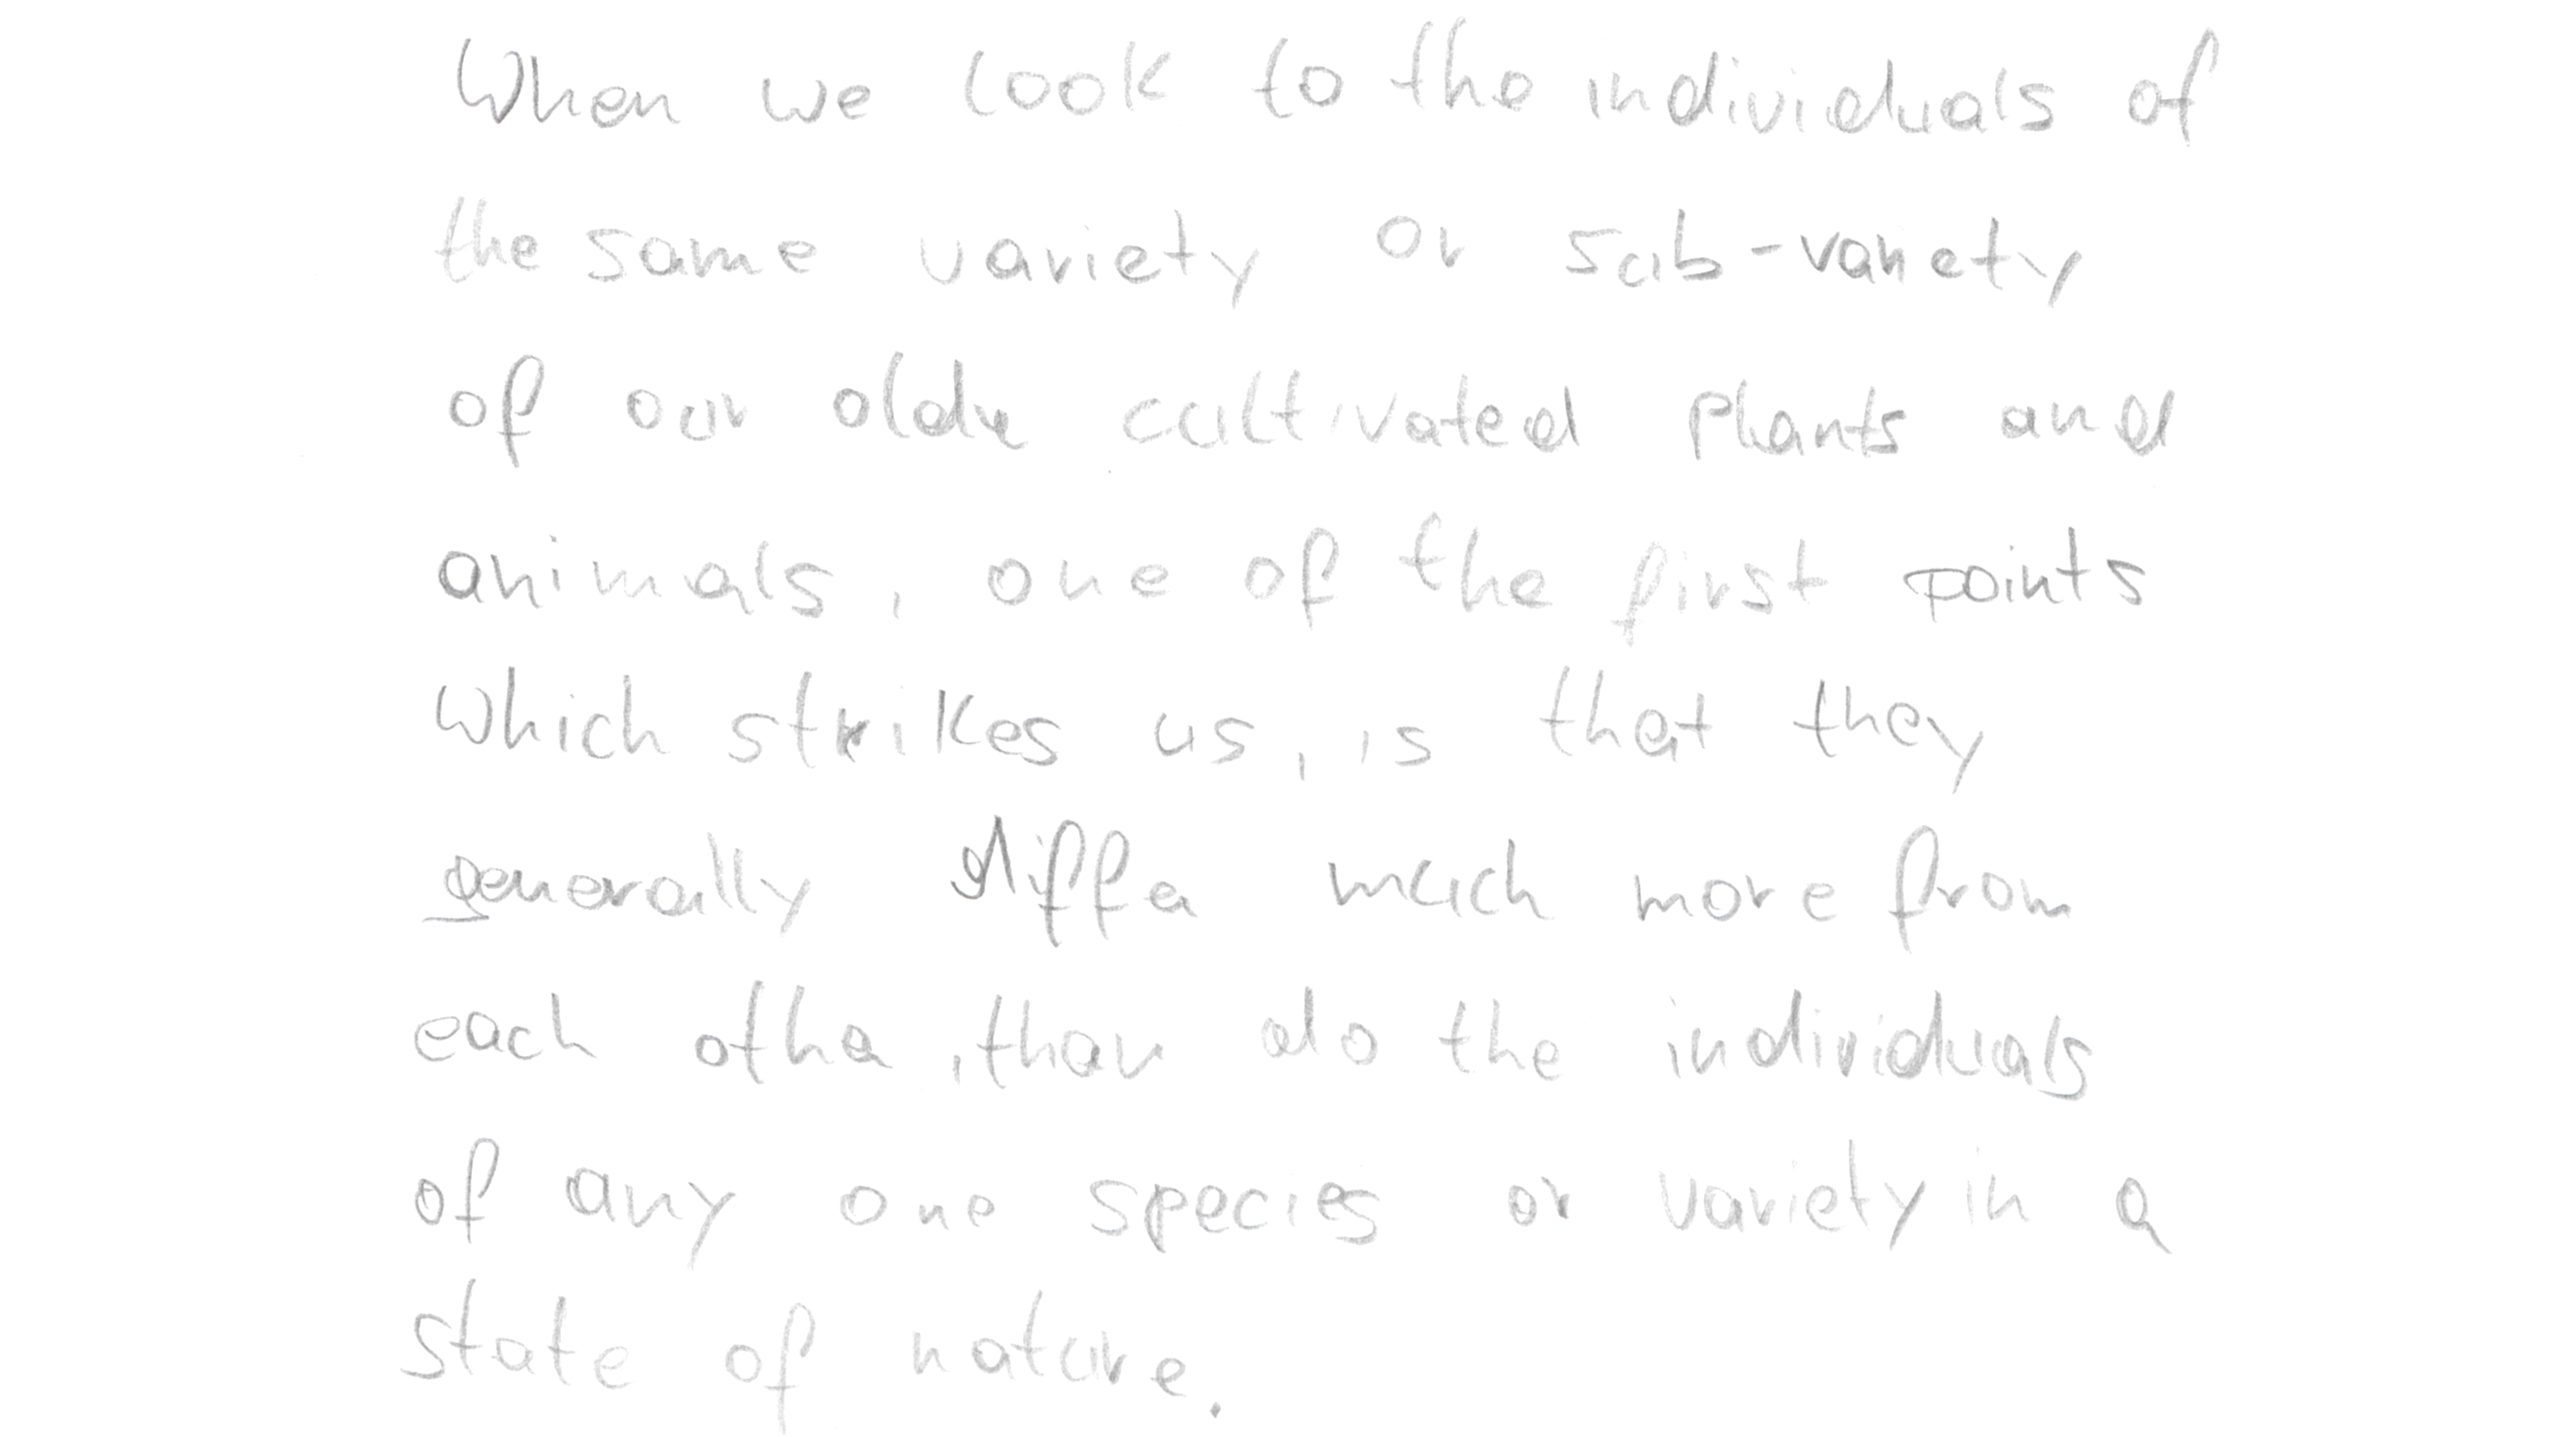 When we look to the individuals of
the same variety or sub-variety
of our older cultivated plants and
animals, one of the first points
which strikes us, is that they
generally differ much more from
each other, than do the individuals
of any one species or variety in a
state of nature.